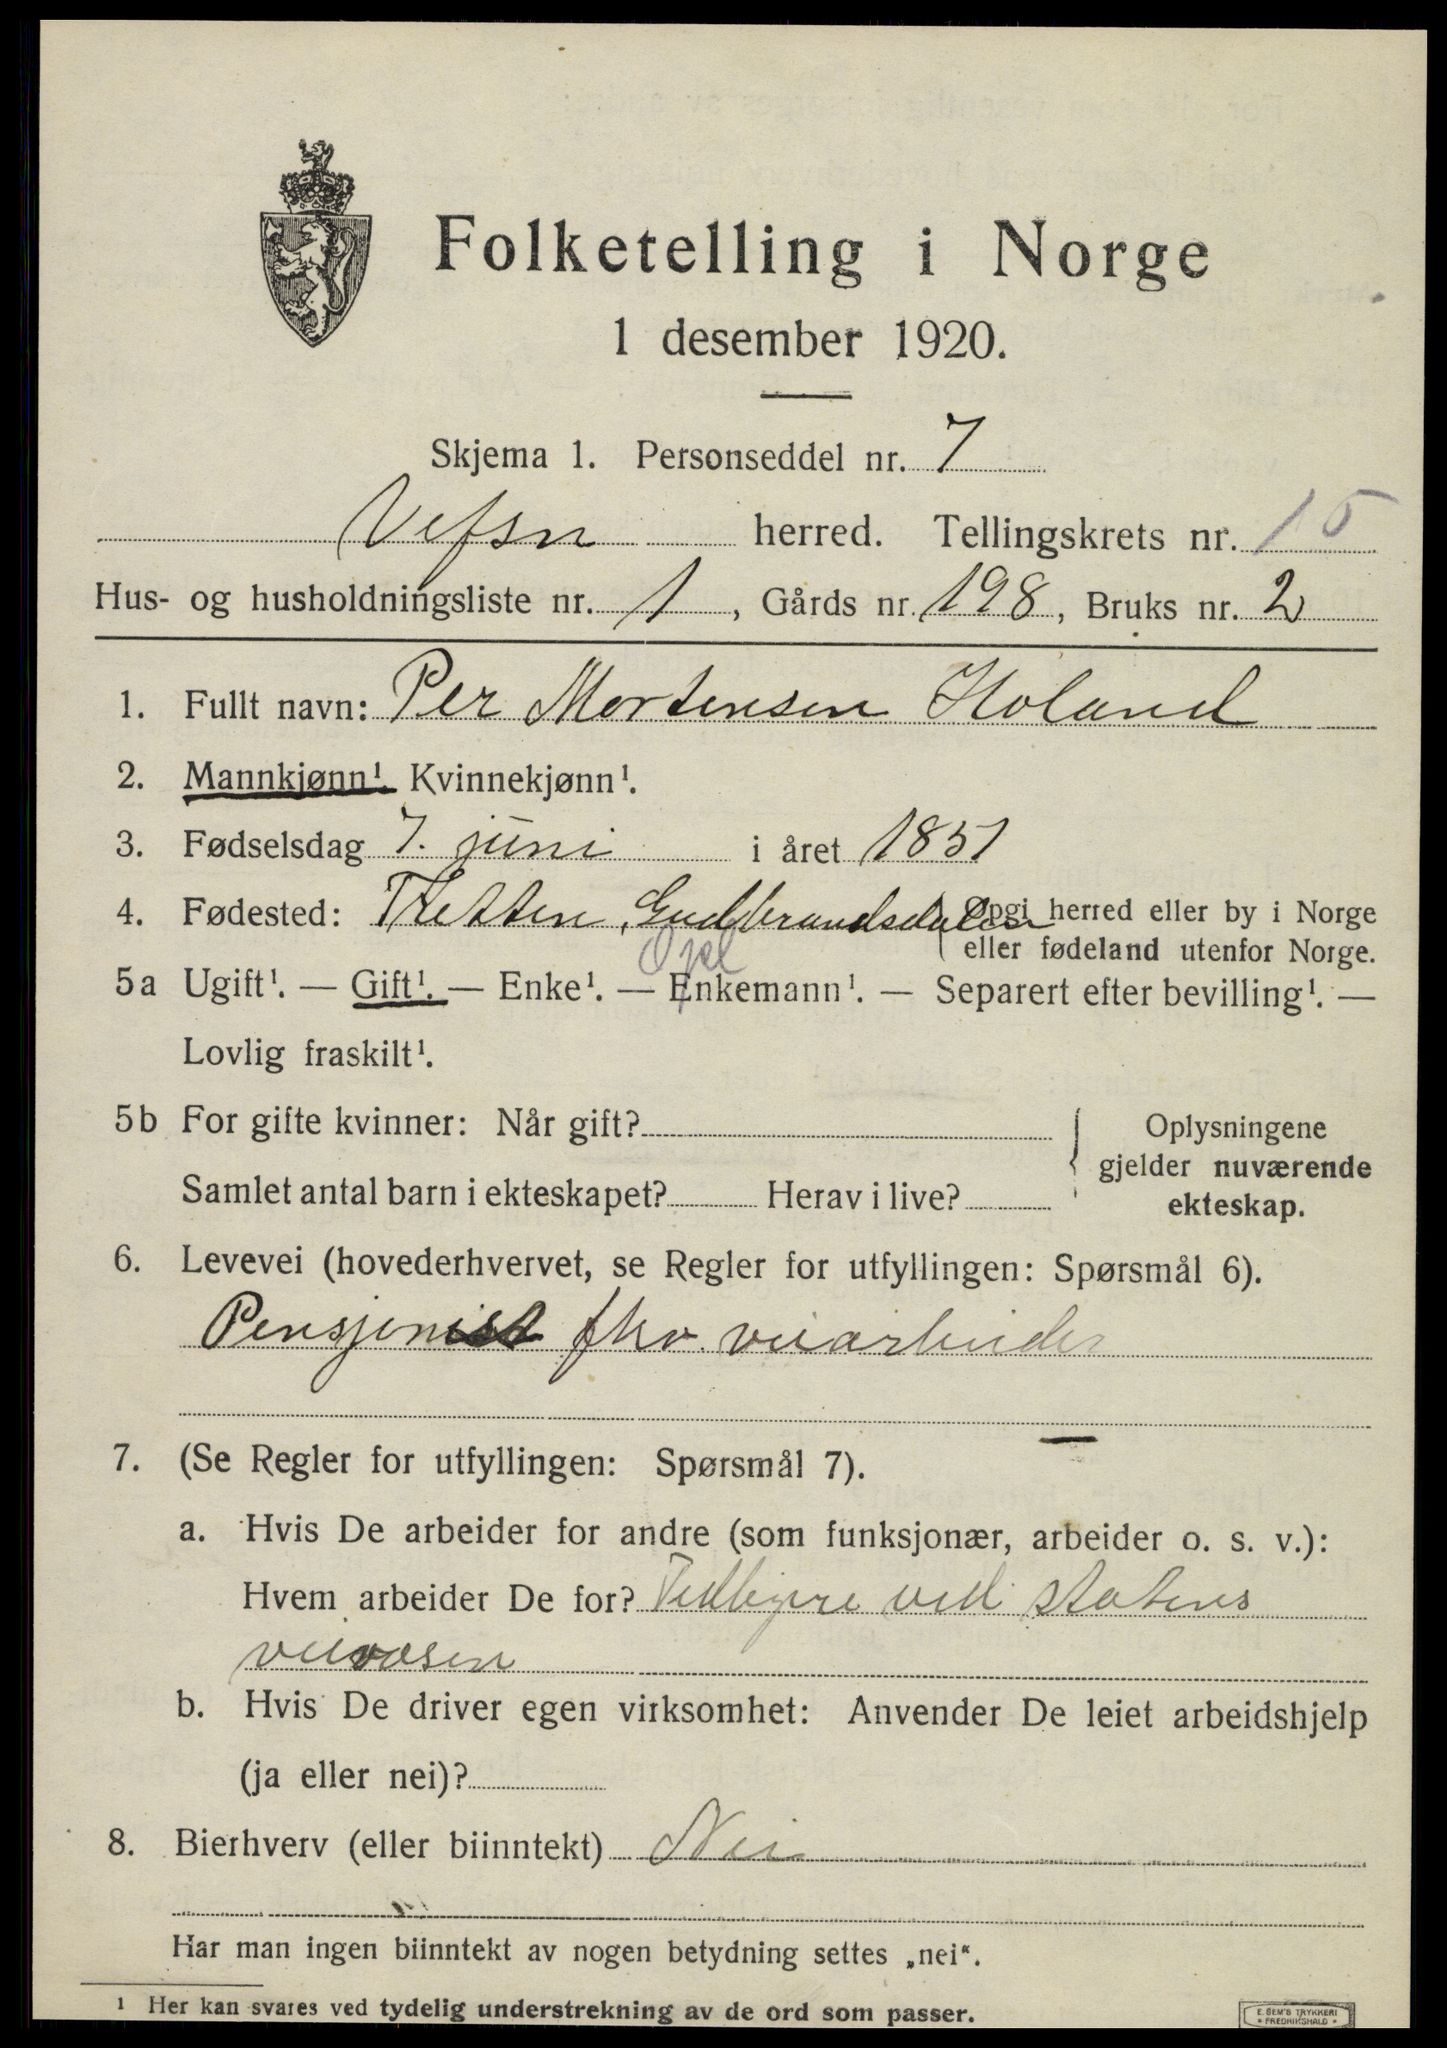 Folketelling i Norge
1 desember 1920.
Skjema 1. Personseddel nr. 7
Vefsn herred. Tellingskrets nr. 15
Hus- og husholdningsliste nr. 1, Gårds nr. 198, Bruks nr. 2
1. Fullt navn: Per Mortensen Holand
2. Mannkjønn¹. Kvinnekjønn¹.
3. Fødselsdag 7. juni i året 1851
4. Fødested: Tretten, Gudbrandsdalen Opgi herred eller by i Norge
eller fødeland utenfor Norge.
5a Ugift¹. — Gift¹. — Enke¹. — Enkemann¹. — Separert efter bevilling¹. —
Lovlig fraskilt¹.
5b For gifte kvinner: Når gift? Oplysningene
gjelder nuværende
Samlet antal barn i ekteskapet? Herav i live? ekteskap.
6. Levevei (hovederhvervet, se Regler for utfyllingen: Spørsmål 6).
Pensjonist fhv. veiarbeider
7. (Se Regler for utfyllingen: Spørsmål 7).
a. Hvis De arbeider for andre (som funksjonær, arbeider o. s. v.):
Hvem arbeider De for? Tidligere ved statens
veivæsen
b. Hvis De driver egen virksomhet: Anvender De leiet arbeidshjelp
(ja eller nei)?
8. Bierhverv (eller biinntekt) Nei
Har man ingen biinntekt av nogen betydning settes „nei“.
¹ Her kan svares ved tydelig understrekning av de ord som passer.
E. SEM'S TRYKKERI
• FREDRIKSHALD •